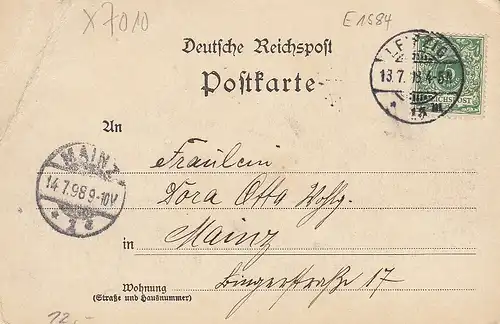 X7010
E1584
Deutsche Reichspost
Postkarte
LEIPZIG
13.7.98
REICHSPOST
An
Fräulein
Dora Otto Wohlg.
MAINZ
14.7.98 9-10V
in Mainz
Bingerstraße 17
Wohnung
(Straße und Hausnummer)
12,-